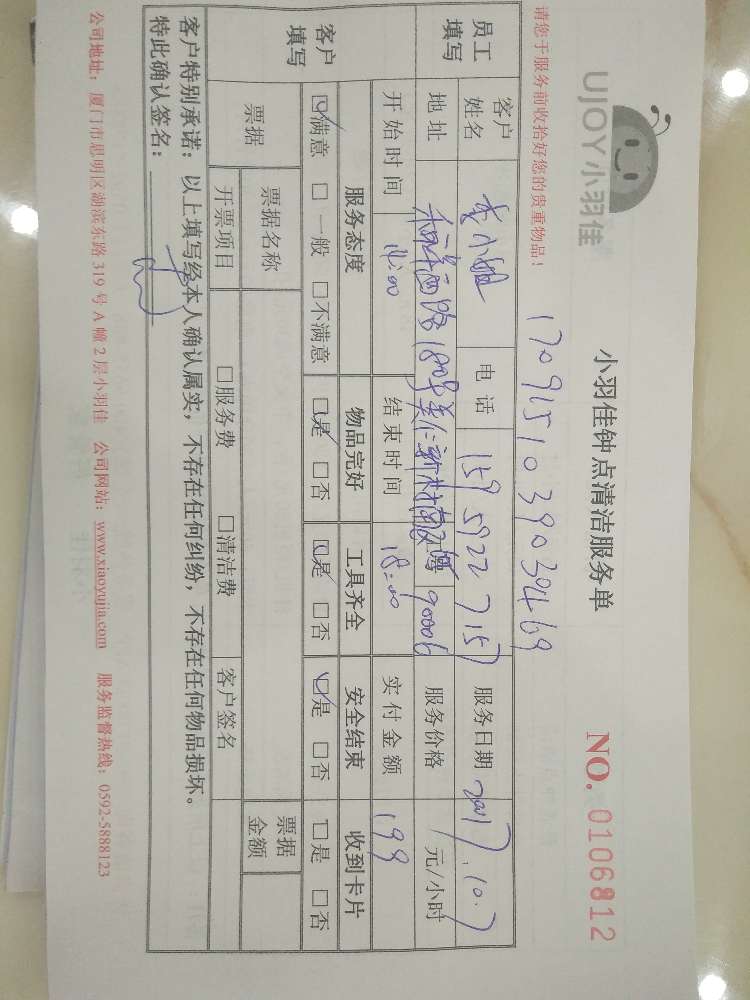 UJOY小羽佳
小羽佳钟点清洁服务单
NO. 0106812
请您于服务前收拾好您的贵重物品！
1709151039039469
员工填写 客户姓名 李小姐 电话 服务日期 2017.10.7
地址 服务价格 元/小时
开始时间 14:00 结束时间 18:00 实付金额 199
客户填写 服务态度 物品完好 工具齐全 安全结束 收到卡片
☑满意 □一般 □不满意 ☑是 □否 ☑是 □否 ☑是 □否 □是 □否
票据 票据名称 票据金额
开票项目 □服务费 □清洁费 客户签名
客户特别承诺：以上填写经本人确认属实，不存在任何纠纷，不存在任何物品损坏。
特此确认签名：
公司地址：厦门市思明区湖滨东路 319 号 A 幢 2 层小羽佳 公司网站：www.xiaoyujia.com 服务监督热线：0592-5888123